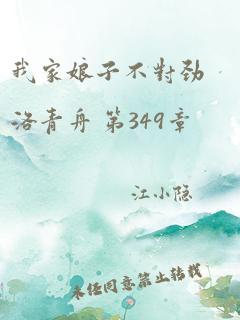 我家娘子不對劲
洛青舟 第349章
江小隐
未经同意禁止转载